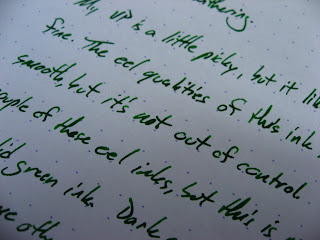 My VP is a little picky, but it
fine. The eel qualities of this ink
smooth, but it's not out of control.
of these eel inks, but this is
green ink. Dark